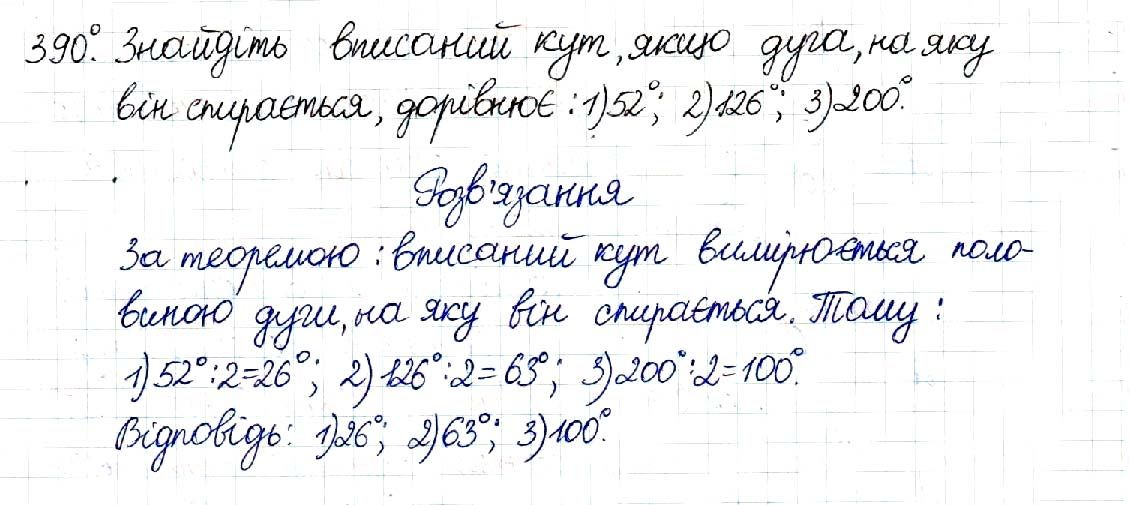 390°. Знайдіть вписаний кут, якщо дуга, на яку
він спирається, дорівнює: 1) 52°; 2) 126°; 3) 200°.
Розв'язання
За теоремою: вписаний кут вимірюється поло-
виною дуги, на яку він спирається. Тому:
1) 52°:2=26°; 2) 126°:2=63°; 3) 200°:2=100°.
Відповідь: 1) 26°; 2) 63°; 3) 100°.